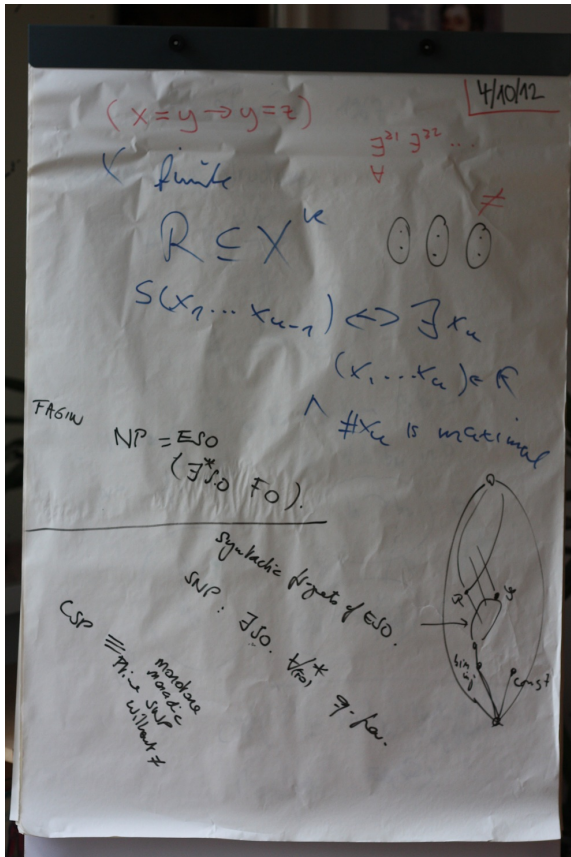 4/10/12
(x = y → y = z)
∃²¹ ∃²² ...
∀
X finite
≠
R ⊆ Xᵏ
S(x₁ ... xₖ₋₁) ↔ ∃xₖ
(x₁ ... xₖ) ∈ R
∧ #xₖ is maximal
FAGIN
NP = ESO
(∃*SO FO).
syntactic fragments of ESO.
SNP : ∃SO. ∀FO*
CSP ≡
monotone
monadic
SNP
without ≠
const